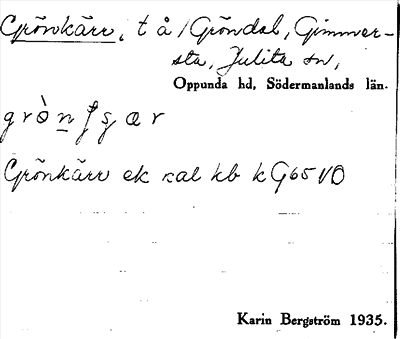 Grönkärr, t å /Gröndal, Gimmer-
sta, Julita sn,
Oppunda hd, Södermanlands län.
Grönkärr ek kal kb k G65 VO
Karin Bergström 1935.